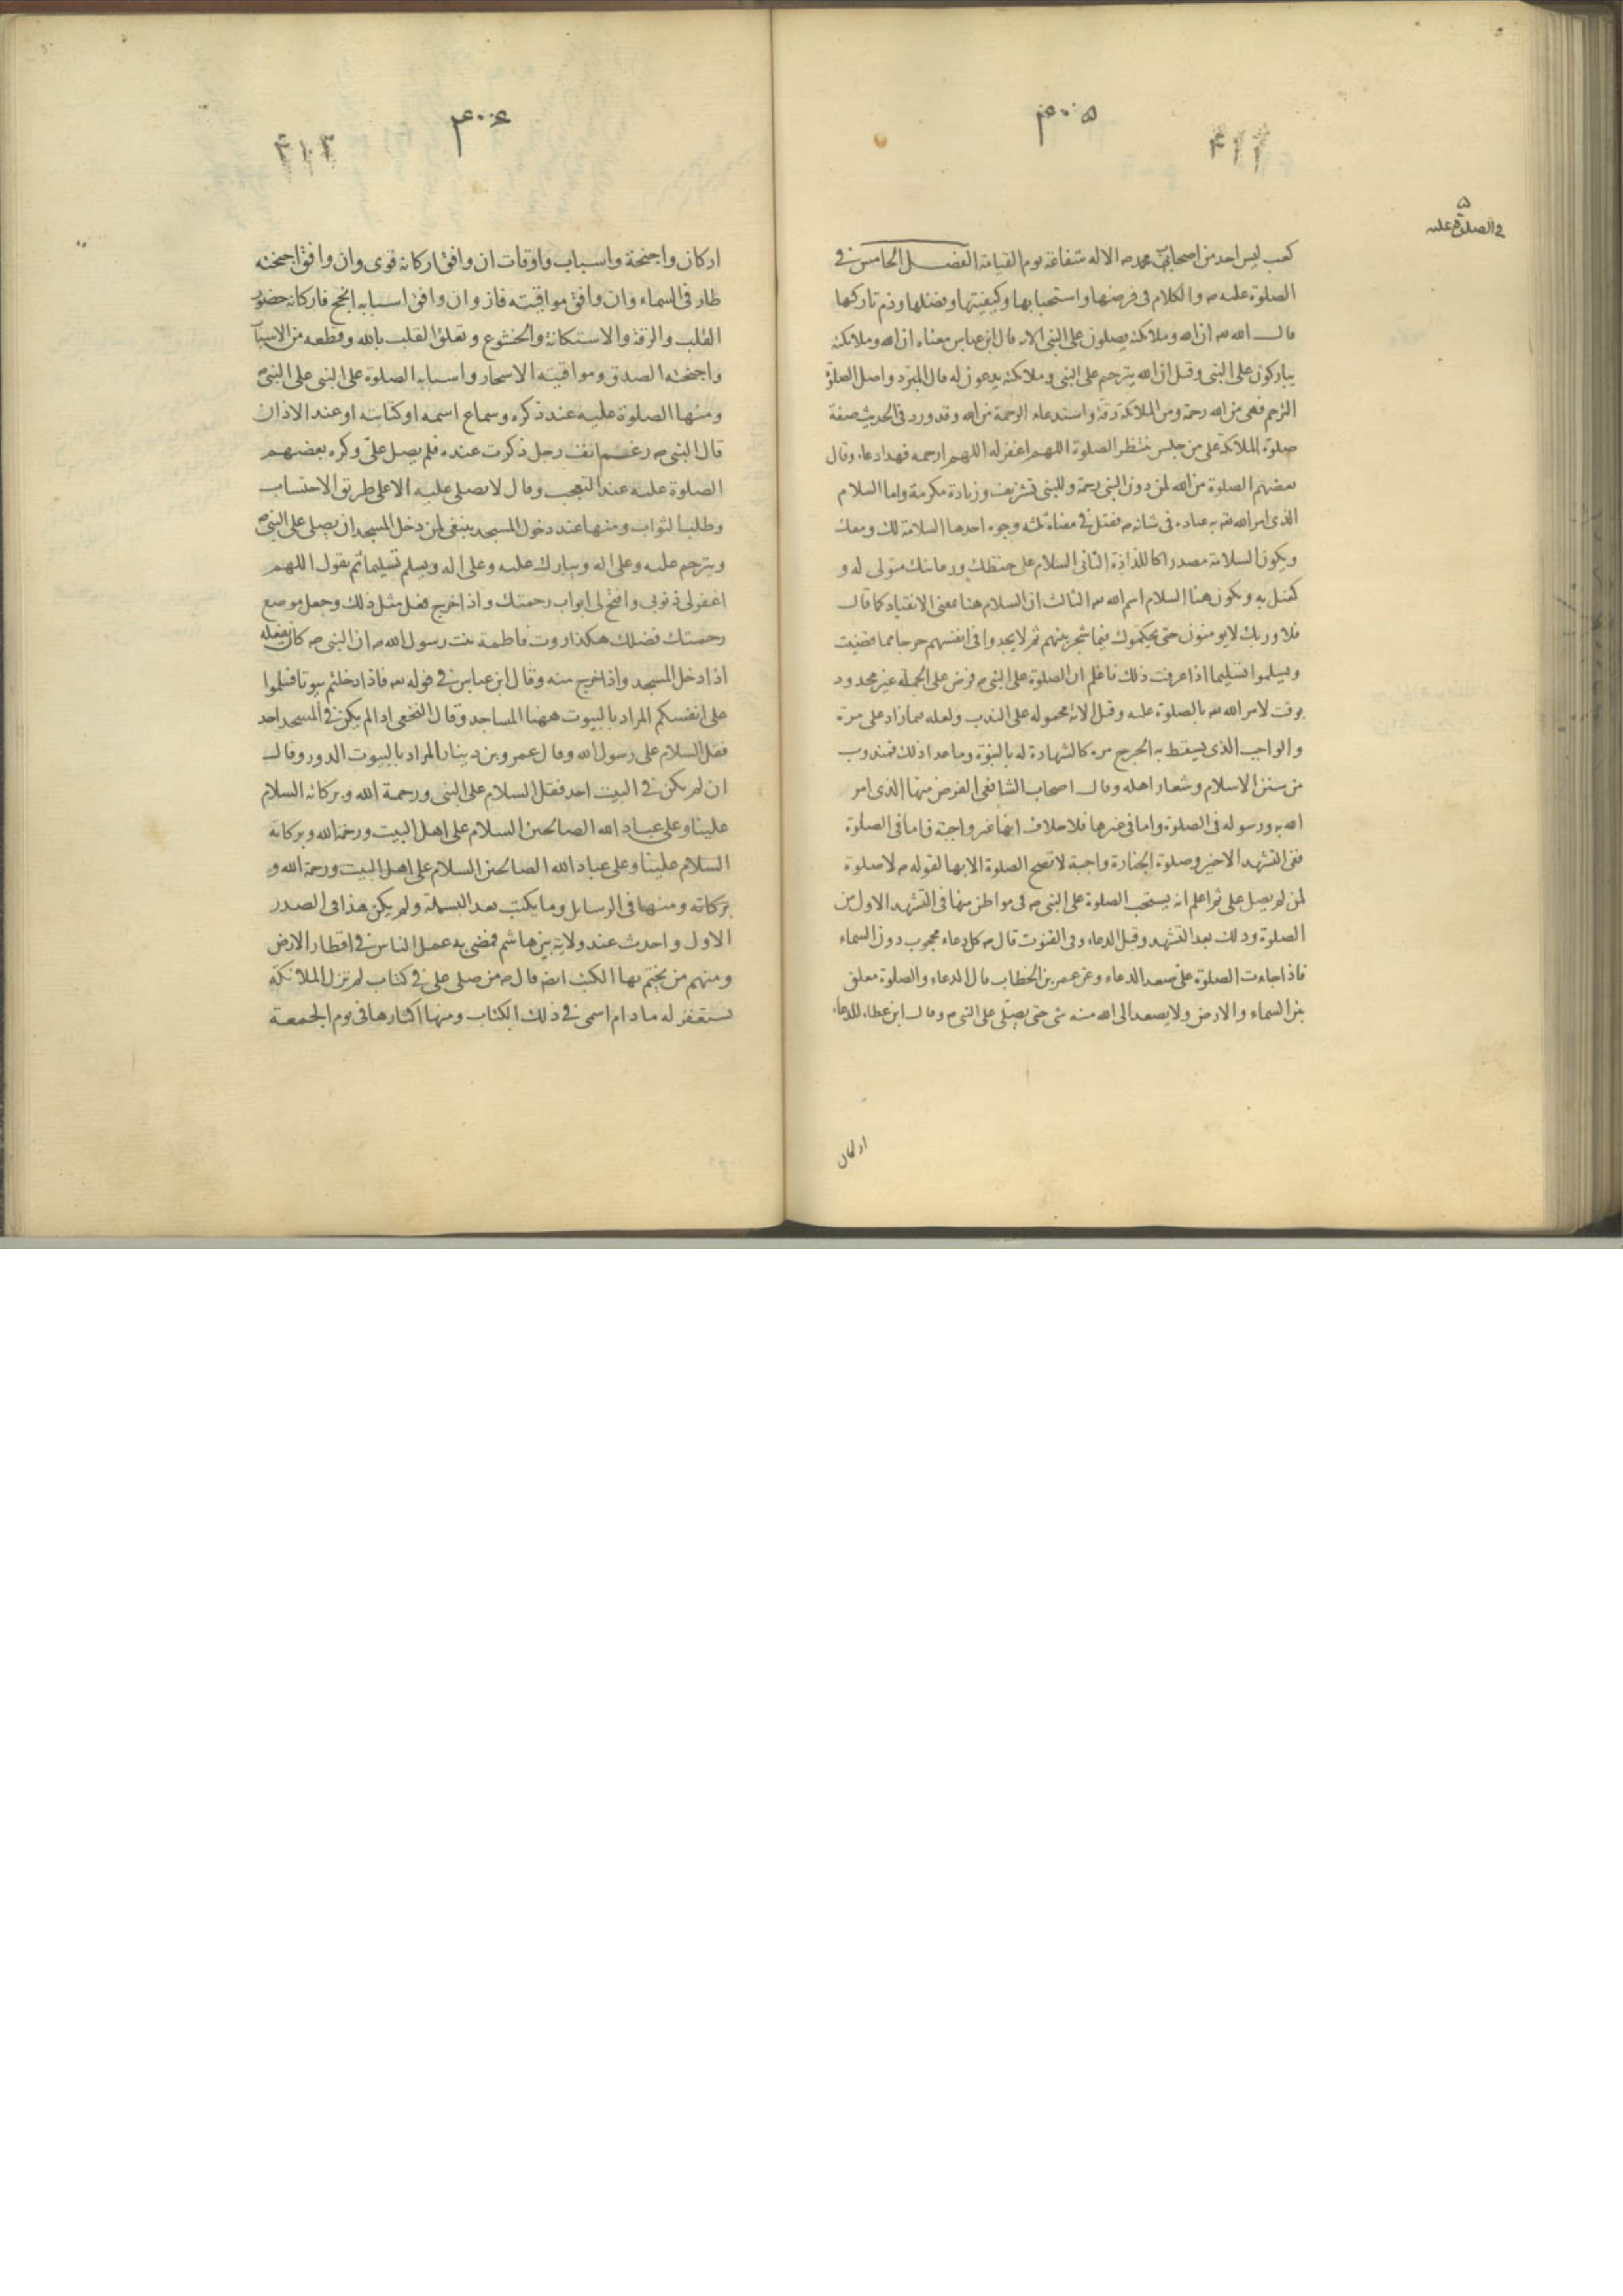 ٤٠٠٥
٤١١
في الصلوة عليه
كعب ليس احد من اصحاب محمد ص الا له شفاعة يوم القيامة الفصل الخامس في
الصلوة عليه ص والكلام في فرضها واستحبابها وكيفيتها وفضلها وذم تاركها
قال الله تع ان الله وملائكته يصلون على النبي الاية قال ابن عباس معناه ان الله وملائكته
يباركون على النبي وقيل ان الله يترحم على النبي وملائكته يدعون له قال المبرد واصل الصلوة
الترحم فهي من الله رحمة ومن الملائكة رقة واستدعاء الرحمة من الله وقد ورد في الحديث صفة
صلوة الملائكة على من جلس ينتظر الصلوة اللهم اغفر له اللهم ارحمه فهذا دعاء وقال
بعضهم الصلوة من الله لمن دون النبي رحمة وللنبي تشريف وزيادة مكرمة واما السلام
الذي امر الله تع به عباده في شانه ص فقيل في معناه ثلثه وجوه احدها السلامة لك ومعك
ويكون السلامة مصدرا كاللذاذة الثاني السلام على حفظك ورعايتك متولى له و
كفيل به ويكون هنا السلام اسم الله تع الثالث ان السلام هنا بمعنى الانقياد كما قال
فلا وربك لا يومنون حتى يحكموك فيما شجر بينهم ثم لا يجدوا في انفسهم حرجا مما قضيت
ويسلموا تسليما اذا عرفت ذلك فاعلم ان الصلوة على النبي ص فرض على الجملة غير محدود
بوقت لامر الله تع بالصلوة عليه وقيل الاية محموله على الندب ولعله مما زاد على مرة
والواجب الذي يسقط به الحرج مره كالشهادة له بالنبوة وما عدا ذلك فمندوب
من سنن الاسلام وشعار اهله وقال اصحاب الشافعي الفرض منها الذي امر
الله به ورسوله في الصلوة واما في غيرها فلا خلاف انها غير واجبة فاما في الصلوة
ففي التشهد الاخير وصلوة الجنازة واجبة لا تصح الصلوة الا بها لقوله ص لا صلوة
لمن لم يصل على ثم اعلم انه يستحب الصلوة على النبي ص في مواطن منها في التشهد الاول من
الصلوة وذلك بعد التشهد وقبل الدعاء وفي القنوت قال ص كل دعاء محجوب دون السماء
فاذا جاءت الصلوة على صعد الدعاء وعن عمر بن الخطاب قال الدعاء والصلوة معلق
بين السماء والارض ولا يصعد الى الله منه شي حتى يصلى على النبي ص وقال ابن عطاء للدعاء
اركان
٤٠٠٦
٤١٢
اركان واجنحة واسباب واوقات ان وافق اركانه قوى وان وافق اجنحته
طار في السماء وان وافق مواقيته فاز وان وافق اسبابه انجح فاركانه حضور
القلب والرقة والاستكانة والخشوع وتعلق القلب بالله وقطعه من الاسباب
واجنحته الصدق ومواقيته الاسحار واسبابه الصلوة على النبي على النبي ص
ومنها الصلوة عليه عند ذكره وسماع اسمه او كتابته او عند الاذان
قال النبي ص رغم انف رجل ذكرت عنده فلم يصل على وكره بعضهم
الصلوة عليه عند التعجب وقال لا يصلى عليه الا على طريق الاحتساب
وطلب الثواب ومنها عند دخول المسجد ينبغي لمن دخل المسجد ان يصلى على النبي ص
ويترحم عليه وعلى اله ويبارك عليه وعلى اله ويسلم تسليما ثم يقول اللهم
اغفر لى ذنوبي وافتح لى ابواب رحمتك واذا خرج فعل مثل ذلك وجعل موضع
رحمتك فضلك هكذا روت فاطمة بنت رسول الله ص ان النبي ص كان يفعله
اذا دخل المسجد واذا خرج منه وقال ابن عباس في قوله تع فاذا دخلتم بيوتا فسلموا
على انفسكم المراد بالبيوت ههنا المساجد وقال النخعي اذا لم يكن في المسجد احد
فقل السلام على رسول الله وقال عمرو بن دينار المراد بالبيوت الدور وقال
ان لم يكن في البيت احد فقل السلام على النبي ورحمة الله وبركاته السلام
علينا وعلى عباد الله الصالحين السلام على اهل البيت ورحمة الله وبركاته
السلام علينا وعلى عباد الله الصالحين السلام على اهل البيت ورحمة الله و
بركاته ومنها في الرسايل وما يكتب بعد البسملة ولم يكن هذا في الصدر
الاول واحدث عند ولاية بني هاشم فمضى به عمل الناس في اقطار الارض
ومنهم من يختم بها الكتب ايضا قال ص من صلى على في كتاب لم تزل الملائكة
تستغفر له ما دام اسمى في ذلك الكتاب ومنها اكثارها في يوم الجمعة